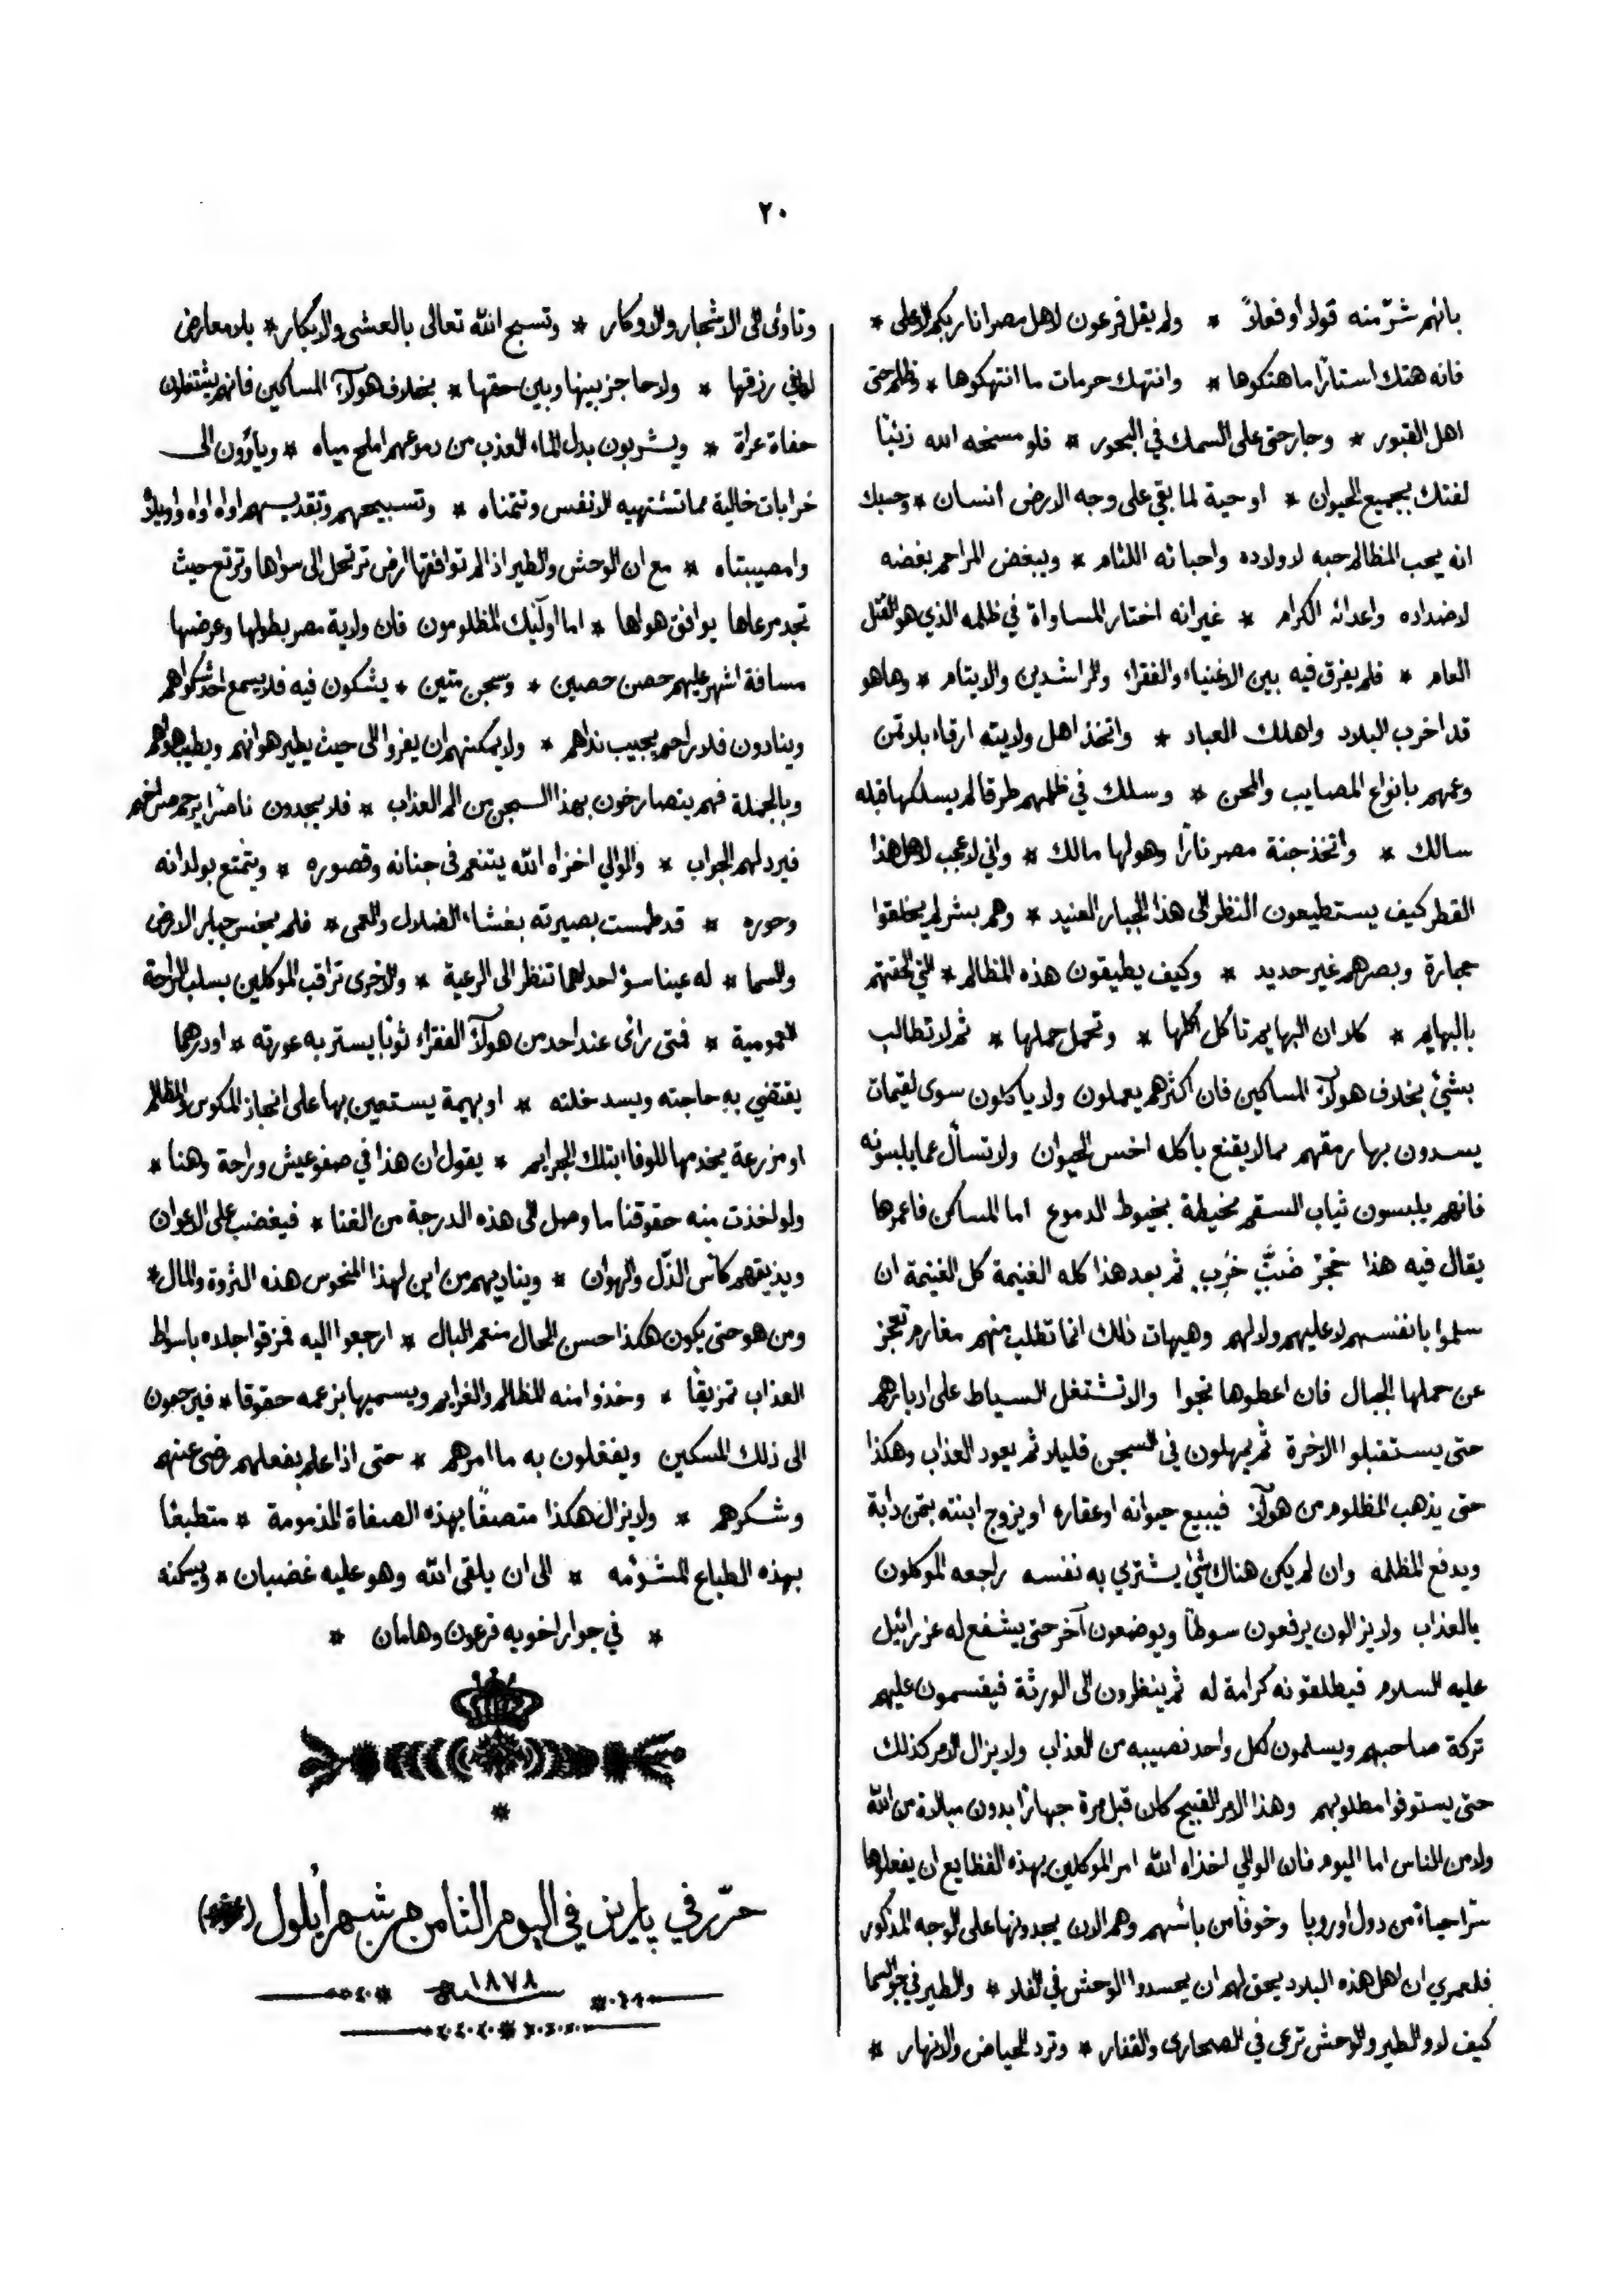 ٢٠
بانهم شرّ منه قولا او فعلاً * ولم يقل فرعون لاهل مصر انا ربكم الاعلى *
فانه هتك استارًا ما هتكوها * وانتهك حرمات ما انتهكوها * وظلم حتى
اهل القبور * وجار حتى على السمك في البحور * فلو مسخه الله ذئبًا
لفتك بجميع الحيوان * او حية لما بقي على وجه الارض انسان * وحسبك
انه يحب المظالم حبه لاولاده واحبائه اللئام * ويبغض المراحم بغضه
لاضداده واعدائه الكرام * غير انه اختار المساواة في ظلمه الذي هو القتل
العام * فلم يفرق فيه بين الاغنياء والفقراء والراشدين والايتام * وها هو
قد اخرب البلاد واهلك العباد * واتخذ اهل ولايته ارقاء بلا ثمن
وعمهم بانواع المصايب والمحن * وسلك في ظلمهم طرقا لم يسلكها قبله
سالك * واتخذ جنة مصر نارًا وهو لها مالك * واني لاعجب لاهل هذا
القطر كيف يستطيعون النظر الى هذا الجبار العنيد * وهم بشر لم يخلقوا
حجارة وبصرهم غير حديد * وكيف يطيقون هذه المظالم * التي الحقتهم
بالبهايم * كلا ان البهايم تاكل اكلها * وتحمل حملها * ثم لا تطالب
بشئ بخلاف هولآء المساكين فان اكثرهم يعملون ولا ياكلون سوى لقيمات
يسدون بها رمقهم مما لا يقنع باكله اخس الحيوان ولا تسأل عما يلبسونه
فانهم يلبسون ثياب السقم مخيطة بخيوط الدموع اما المساكن فاعمرها
يقال فيه هذا جُحْرُ ضَبٍّ خَرِبٍ ثم بعد هذا كله الغنيمة كل الغنيمة ان
سلموا بانفسهم لا عليهم ولا لهم وهيهات ذلك انما تطلب منهم مغارم تعجز
عن حملها الجبال فان اعطوها نجوا والا تشتغل السياط على ادبارهم
حتى يستقبلوا الاخرة ثم يمهلون في السجن قليلا ثم يعود العذاب وهكذا
حتى يذهب المظلوم من هولآء فيبيع حيوانه او عقاره او يزوج ابنته بثمن دابة
ويدفع المظلمه وان لم يكن هناك شئ يشتري به نفسه راجعه الموكلون
بالعذاب ولا يزالون يرفعون سوطًا ويوضعون آخر حتى يشفع له عزرائيل
عليه السلام فيطلقونه كرامة له ثم ينظرون الى الورثة فيقسمون عليهم
تركة صاحبهم ويسلمون كل واحد نصيبه من العذاب ولا يزال الامر كذلك
حتى يستوفوا مطلوبهم وهذا الامر القبيح كان قبل مرة جهارًا بدون مبالاة من الله
ولا من الناس اما اليوم فان الوالي اخذاه الله امر الموكلين بهذه الفظايع ان يفعلوها
سترا حياة من دول اوروپا وخوفًا من بأسهم وهم الان يجدونها على الوجه المذكور
فلعمري ان اهل هذه البلاد يحق لهم ان يحسدوا الوحش في الفلا * والطير في جو السما
كيف لا والطير والوحش ترعى في الصحارى والقفار * وترد الحياض والانهار *
وتاوى الى الاشجار والاوكار * وتسبح الله تعالى بالعشي والابكار * بلا معارض
لها في رزقها * ولا حاجز بينها وبين حقها * بخلاف هولآء المساكين فانهم يشتغلون
حفاة عراة * ويشربون بدل الماء العذب من دموعهم املح مياه * وياؤون الى
خرابات خالية مما تشتهيه الانفس وتتمناه * وتسبيحهم وتقديسهم اواه اواه واويلاه
وامصيبتاه * مع ان الوحش والطير اذا لم توافقها ارض ترتحل الى سواها وترتع حيث
تجد مرعاها يوافق هواها * اما اولٓئيك المظلومون فان ولاية مصر بطولها وعرضها
مسافة اشهر عليهم حصن حصين * وسجن متين * يشكون فيه فلا يسمع احد شكواهم
وينادون فلا راحم يجيب نداهم * ولا يمكنهم ان يفروا الى حيث يطير هوانهم ويطيب هواهم
وبالجملة فهم يتصارخون بهذا السجن من الم العذاب * فلا يجدون ناصرًا يرحم صراخهم
فيرد لهم الجواب * والوالي اخزاه الله يتنعم فى جنانه وقصوره * ويتمتع بولدانه
وحوره * قد طمست بصيرته بغشاء الضلال والعمى * فلم يخش جبار الارض
والسما * له عينا سؤ احداهما تنظر الى الرعية * والاخرى تراقب الموكلين بسلب الراحة
العمومية * فمتى رائ عند احد من هولآء الفقراء ثوبًا يستر به عورته * او درهما
يقتضي به حاجته ويسد خلته * او بهيمة يستعين بها على انجاز المكوس والمظالم
او مزرعة يخدمها للوفاء بتلك الجرايم * يقول ان هذا في صفو عيش وراحة وهنا *
ولو اخذت منه حقوقنا ما وصل الى هذه الدرجة من الغنا * فيغضب على الاعوان
ويذيقهم كأس الذّل والهوان * ويناديهم من اين لهذا المنحوس هذه الثروة والمال *
ومن هو حتى يكون هكذا حسن الحال منعم البال * ارجعوا اليه فمزقوا جلده باسواط
العذاب تمزيقًا * وخذوا منه المظالم والغرايم ويسميها بزعمه حقوقا * فيرجعون
الى ذلك المسكين ويفعلون به ما امرهم * حتى اذا علم بفعلهم رضى عنهم
وشكرهم * ولا يزال هكذا متصفًا بهذه الصفاة المذمومة * متطبعًا
بهذه الطباع المشؤمه * الى ان يلقى الله وهو عليه غضبان * ويسكنه
* في جوار اخويه فرعون وهامان *
حرّر في پاريز في اليوم الثامن من شهر أيلول
سنة ١٨٧٨